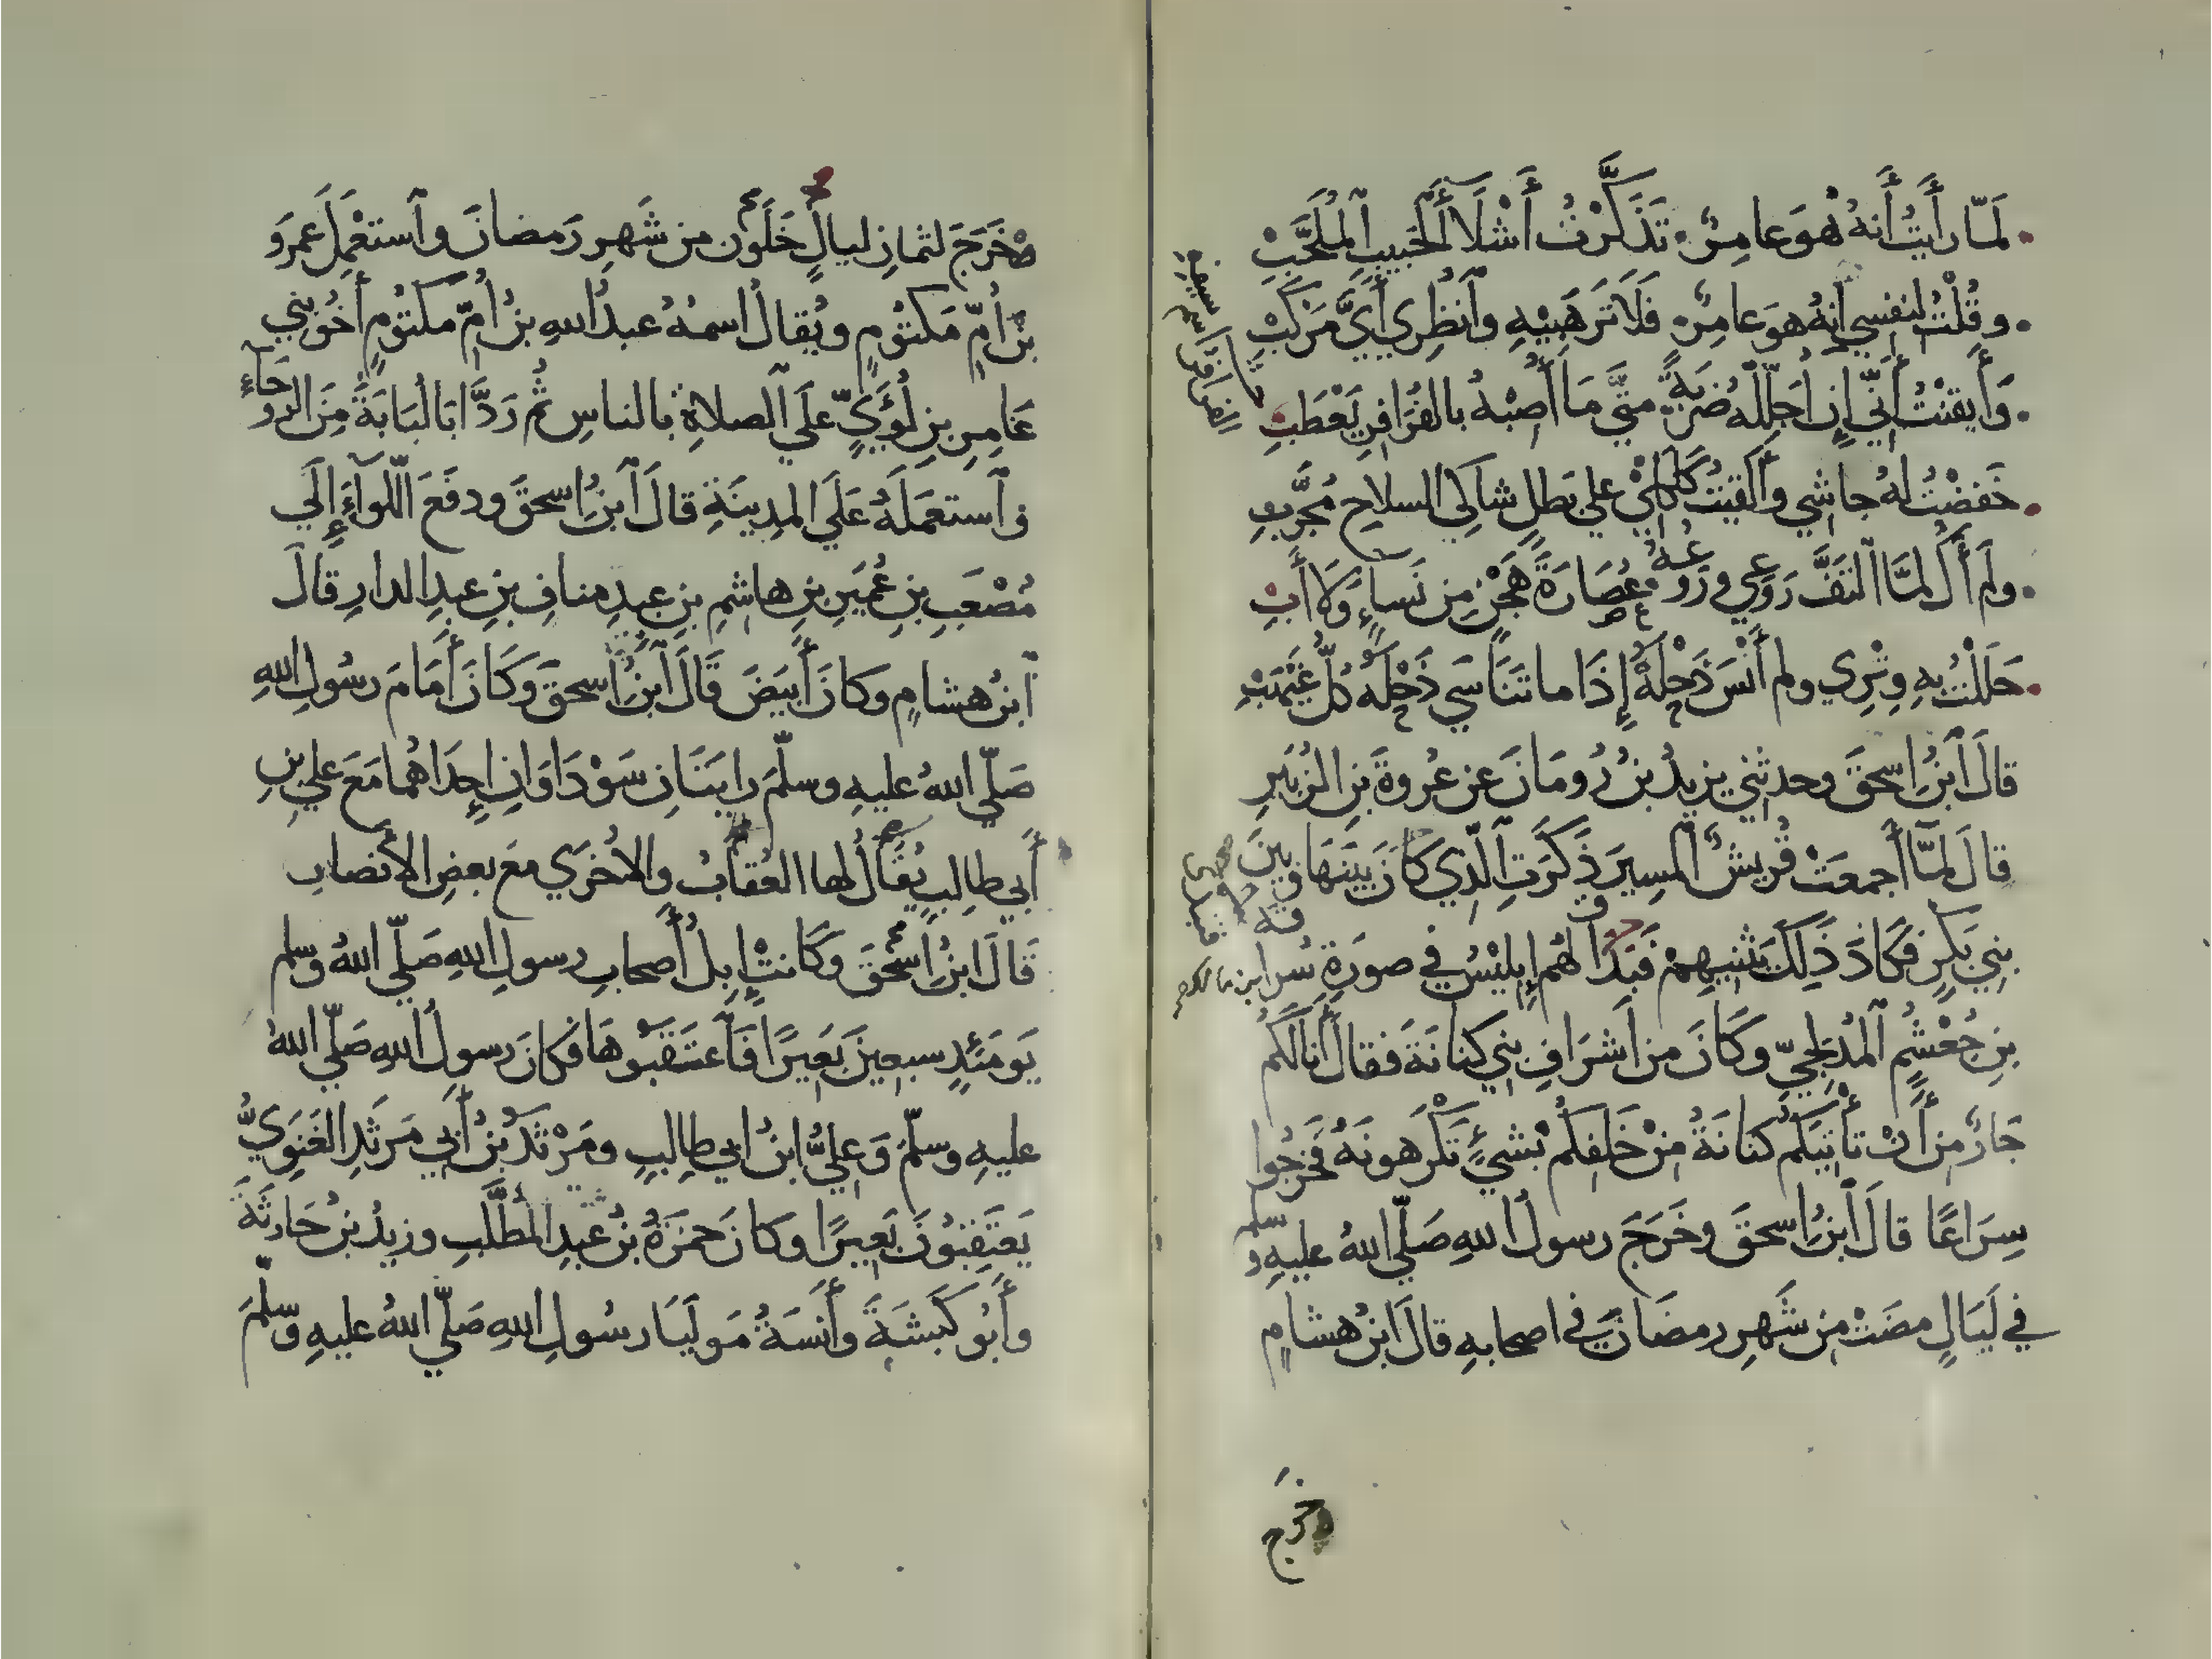 لَمّا رأَيتُ أَنهُ هُوَ عامِرٌ تَذَكَّرْتُ أَشْلَاءَ الحَبيبِ المُلَحَّبْ
وقُلْتُ لنفسِي إنهُ هوَ عامِرٌ فَلَا تَرْهَبِيْهِ وٱنظُرِي أَيَّ مَرْكَبْ
وَأَيقنْتُ أَنّي إِن أُجَلِّلْهُ ضَرْبَةً متَّى مَا أُصِبْهُ بالفُرَافِرِ يَعْطَبْ
الفرافر اسم سيفه
خَفضْتُ لهُ جاشِي وأَلقيتُ كَلكَلِي علي بَطلٍ شاكِي السلاحِ مُجَرَّبِ
ولم أَكُ لمَّا التفَّ رَوعِي ورَوعُهُ عُصَارَةَ هُجْنٍ مِن نَساءٍ وَلَا أَبْ
حَلَلْتُ بهِ وِتْرِي ولم أَنْسَ ذَحْلَهُ إِذَا ما تَنَاسَي ذَحْلَهُ كُلُّ غَيْهَبْ
قالَ ٱبنُ إسحقَ وحدثنِي يزيدُ بنُ رُومَانَ عن عُروةَ بنِ الزبَيرِ
قالَ لمَّا أَجمعَتْ قُريشٌ ٱلمسِيرَ ذَكَرَتِ ٱلَّذِي كَانَ بَينَهَا وبينَ
بنِي بَكرٍ فكَادَ ذَلِكَ يَثنِيهِمْ فَتبَدَّا لهُم إِبليْسُ في صورَةِ سُراقة بن مالك
بنِ جُعْشُمٍ ٱلمُدْلِجيِّ وكَانَ من أَشرَافِ بنِي كنانَةَ فقالَ أَنا لَكُم
جَارٌ من أَنْ تأْتيَكم كنانَةُ مِنْ خَلفِكُم بشيءٍ تَكْرَهونَهُ فخرجُوا
سِرَاعًا قالَ ٱبنُ إسحقَ وخَرَجَ رسولُ اللهِ صَلّي اللهُ عليهِ وسلم
في لَيَالٍ مضَتْ مِن شَهرِ رمضَانَ في اصحابهِ قالَ ابنُ هشامٍ
خرج
خَرَجَ لثمانِ ليالٍ خَلَونَ من شَهرِ رَمضانَ وٱستعْمَلَ عمرَو
بنَ أُمِّ مَكتوْمٍ ويُقالُ اسمُهُ عبدُ اللهِ بنُ أُمِّ مكتوْمٍ أَخُو بنِي
عَامِرِ بنِ لُؤَيٍّ علَي ٱلصلاةِ بالناسِ ثُم رَدَّ ابَا لُبَابَةَ مِنَ الروحَاءِ
وٱستعمَلَهُ عَلَي المدِينَةِ قالَ ٱبنُ إسحقَ ودفَعَ ٱللّواءَ إِلَي
مُصْعَبِ بنِ عُمَيرِ بنِ هاشِمِ بنِ عبدِ منافِ بنِ عبدِ الدارِ قالَ
ٱبنُ هشامٍ وكانَ أَبيَضَ قَالَ ٱبنُ إسحقَ وَكَانَ أَمَامَ رسُولِ اللهِ
صَلّي اللهُ عليهِ وسلّمَ رايَتَانِ سَوْدَاوَانِ إِحدَاهُما مَعَ علي بنِ
أَبي طالِبٍ يُقَالُ لها العُقابُ والأُخرَي معَ بعضِ الأَنصارِ
قَالَ ابنُ إسْحقَ وكَانتْ إِبلُ أَصحابِ رسولِ اللهِ صَلّي اللهُ وسلم
يَومَئذٍ سبعِينَ بَعِيرًا فَٱعتَقَبُوْهَا فكانَ رسولُ اللهِ صَلّي اللهُ
عليهِ وسلّمَ وَعلِيُّ ابنُ ابي طالِبٍ ومَرْثَدُ بنُ أَبِي مَرثَدِ الغَنَوِيُّ
يَعتَقِبُونَ بَعِيرًا وكانَ حمزَةُ بنُ عَبدِ المُطَّلبِ وزيدُ بنُ حَارثَةَ
وأَبُو كَبشَةَ وأَنَسَةُ مَوليَا رسُولِ اللهِ صَلّي اللهُ عليهِ وسلّمَ